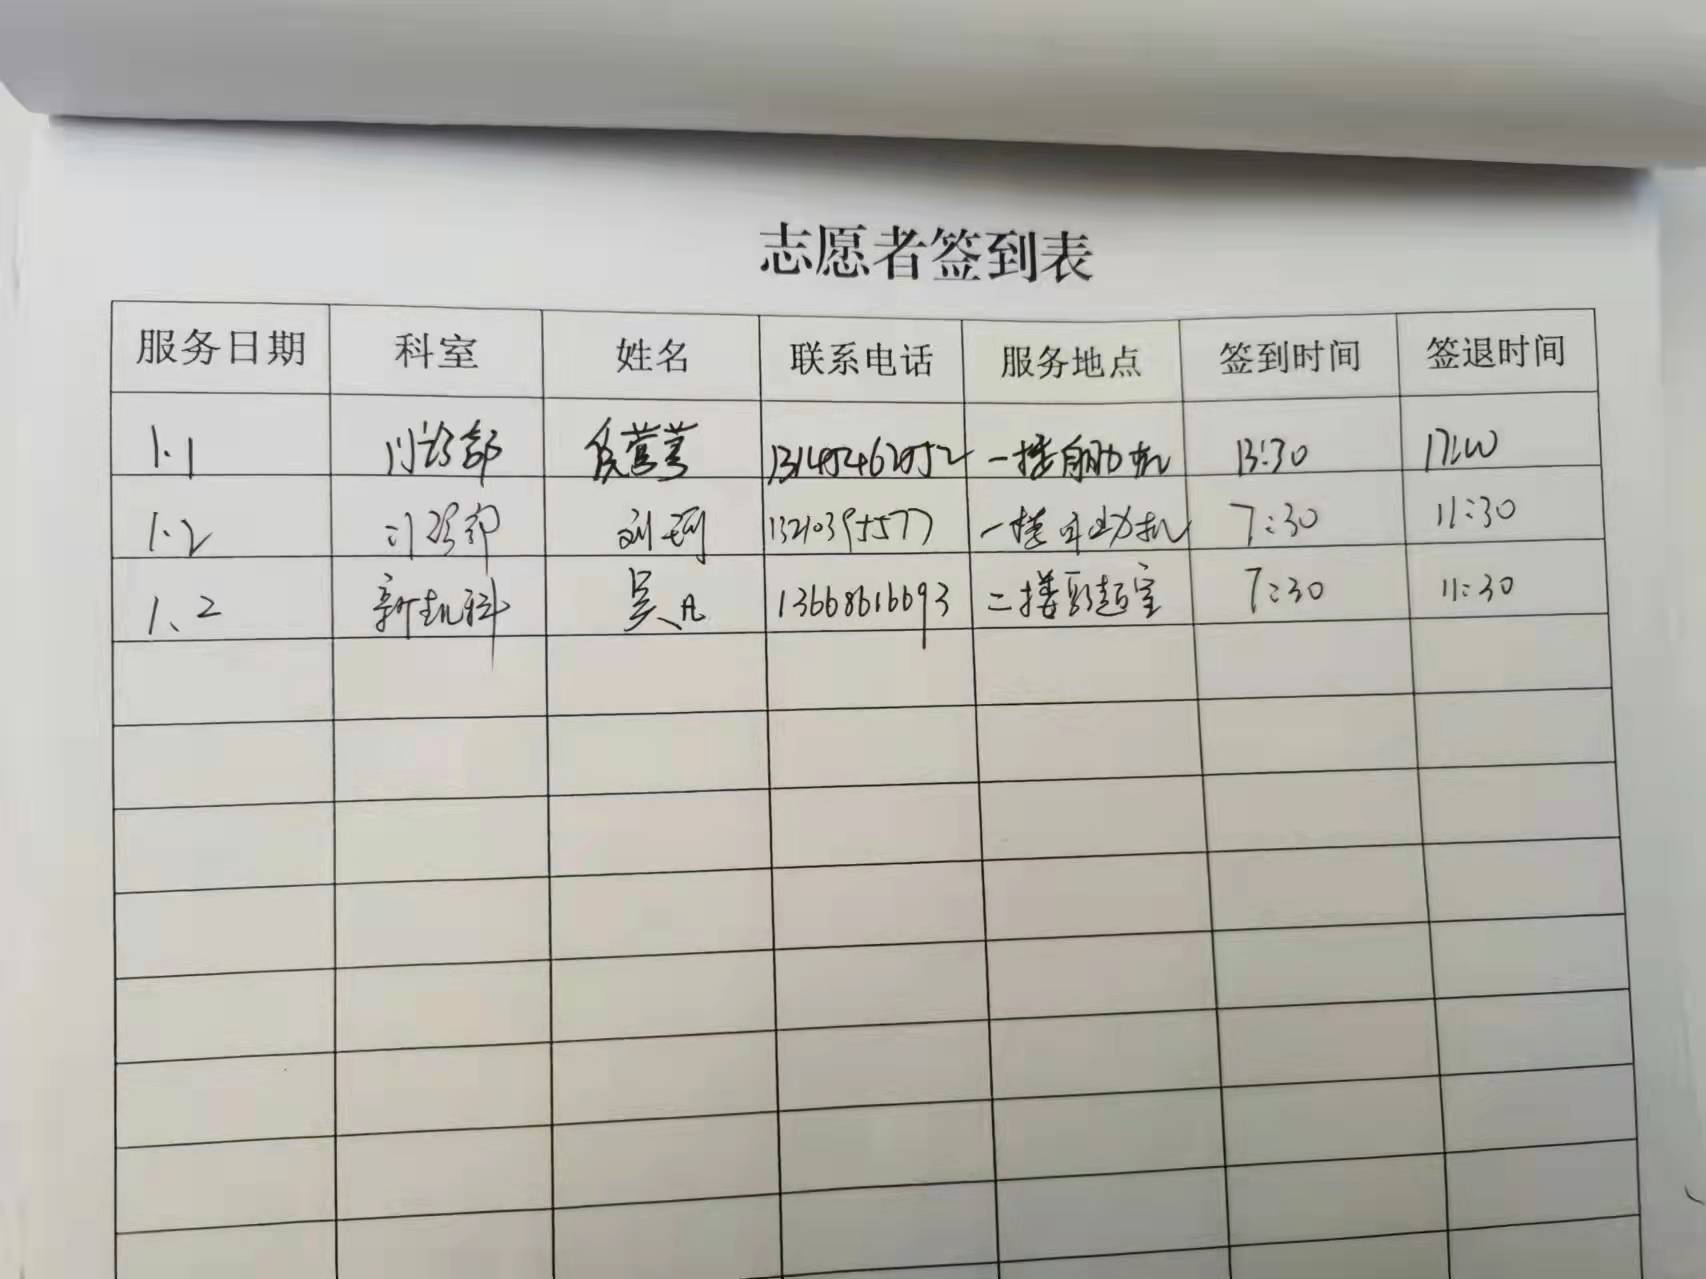 志愿者签到表
服务日期 科室 姓名 联系电话 服务地点 签到时间 签退时间
1.1 门诊部 一楼自助机 13:30 17:00
1.2 门诊部 刘珂 一楼自助机 7:30 11:30
1、2 新生儿科 吴凡 13668616693 二楼彩超室 7:30 11:30